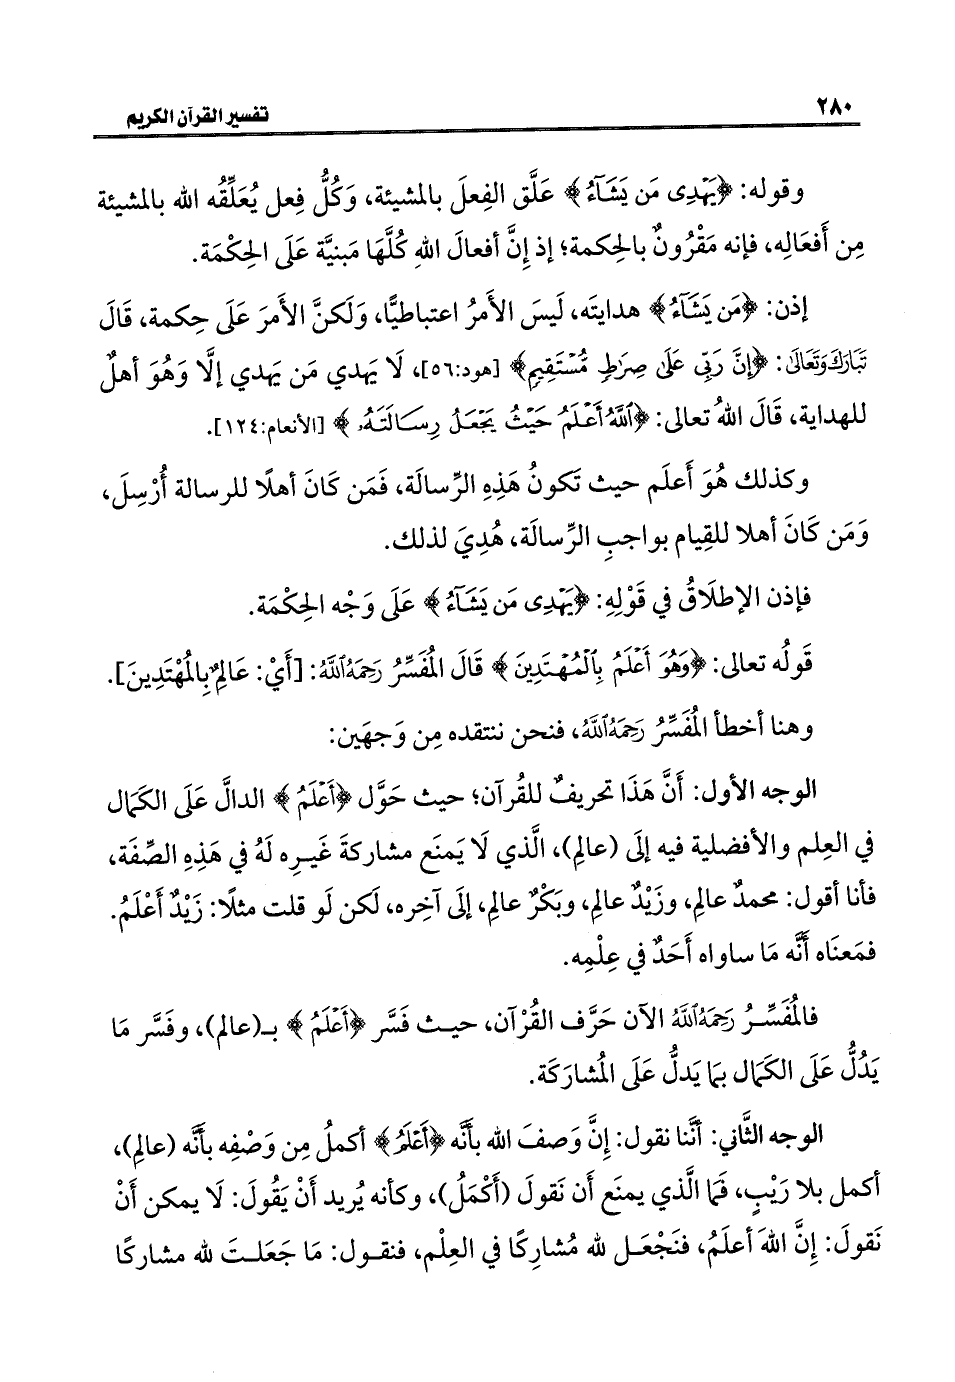 ٢٨٠
تفسير القرآن الكريم
وقوله: ﴿يَهْدِى مَن يَشَآءُ﴾ عَلَّق الفِعلَ بالمشيئة، وَكُلُّ فِعل يُعَلِّقُه الله بالمشيئة
مِن أَفعَالِه، فإنه مَقْرُونٌ بالحِكمة؛ إذ إِنَّ أفعالَ اللهِ كُلَّهَا مَبنيَّة عَلَى الحِكْمَة.
إذن: ﴿مَن يَشَآءُ﴾ هدايتَه، لَيسَ الأَمرُ اعتباطيًّا، وَلَكنَّ الأمرَ عَلَى حِكمة، قَالَ
تَبَارَكَ وَتَعَالَى: ﴿إِنَّ رَبِّى عَلَىٰ صِرَٰطٍ مُّسْتَقِيمٍ﴾ [هود:٥٦]، لَا يَهدي مَن يَهدي إلَّا وَهُوَ أهلٌ
للهداية، قَالَ اللهُ تعالى: ﴿ٱللَّهُ أَعْلَمُ حَيْثُ يَجْعَلُ رِسَالَتَهُۥ﴾ [الأنعام:١٢٤].
وكذلك هُوَ أَعلَم حيث تَكونُ هَذِهِ الرِّسالَة، فَمَن كَانَ أهلًا للرسالة أُرْسِلَ،
وَمَن كَانَ أهلا للقِيام بواجبِ الرِّسالَة، هُدِيَ لذلك.
فإذن الإطلَاقُ في قَوْلِهِ: ﴿يَهْدِى مَن يَشَآءُ﴾ عَلَى وَجْه الحِكْمَة.
قَولُه تعالى: ﴿وَهُوَ أَعْلَمُ بِٱلْمُهْتَدِينَ﴾ قَالَ المُفَسِّرُ رَحِمَهُ ٱللَّهُ: [أَيْ: عَالِمٌ بِالمُهْتَدِينَ].
وهنا أخطأ المُفَسِّرُ رَحِمَهُ ٱللَّهُ، فنحن ننتقده مِن وَجهَين:
الوجه الأول: أَنَّ هَذَا تحريفٌ للقُرآن؛ حيث حَوَّل ﴿أَعْلَمُ﴾ الدالَّ عَلَى الكَمَال
في العِلم والأفضلية فيه إلَى (عالِم)، الَّذي لَا يَمنَع مشاركةَ غَيرِه لَهُ في هَذِهِ الصِّفَة،
فأنا أقول: محمدٌ عالِم، وزَيْدٌ عالِم، وبَكْرٌ عالِم، إلَى آخِره، لَكن لَو قلت مثلًا: زَيْدٌ أَعْلَمُ.
فمَعنَاه أَنَّه مَا ساواه أَحَدٌ في عِلْمِه.
فالمُفَسِّرُ رَحِمَهُ ٱللَّهُ الآن حَرَّف القُرْآن، حيث فَسَّر ﴿أَعْلَمُ﴾ بـ(عالم)، وفسَّر مَا
يَدُلُّ عَلَى الكَمَال بمَا يَدلُّ عَلَى المُشارَكَة.
الوجه الثَّاني: أنَّنا نقول: إِنَّ وَصفَ الله بأَنَّه ﴿أَعْلَمُ﴾ أكملُ مِن وَصْفِه بأَنَّه (عالِم)،
أكمل بلا رَيْبٍ، فَمَا الَّذي يمنَع أن نَقولَ (أَكْمَلُ)، وكأنه يُريد أَنْ يَقُولَ: لَا يمكن أَنْ
نَقولَ: إِنَّ اللهَ أعلَمُ، فنَجْعَل لله مُشارِكًا في العِلْم، فنقول: مَا جَعَلتَ لله مشاركًا